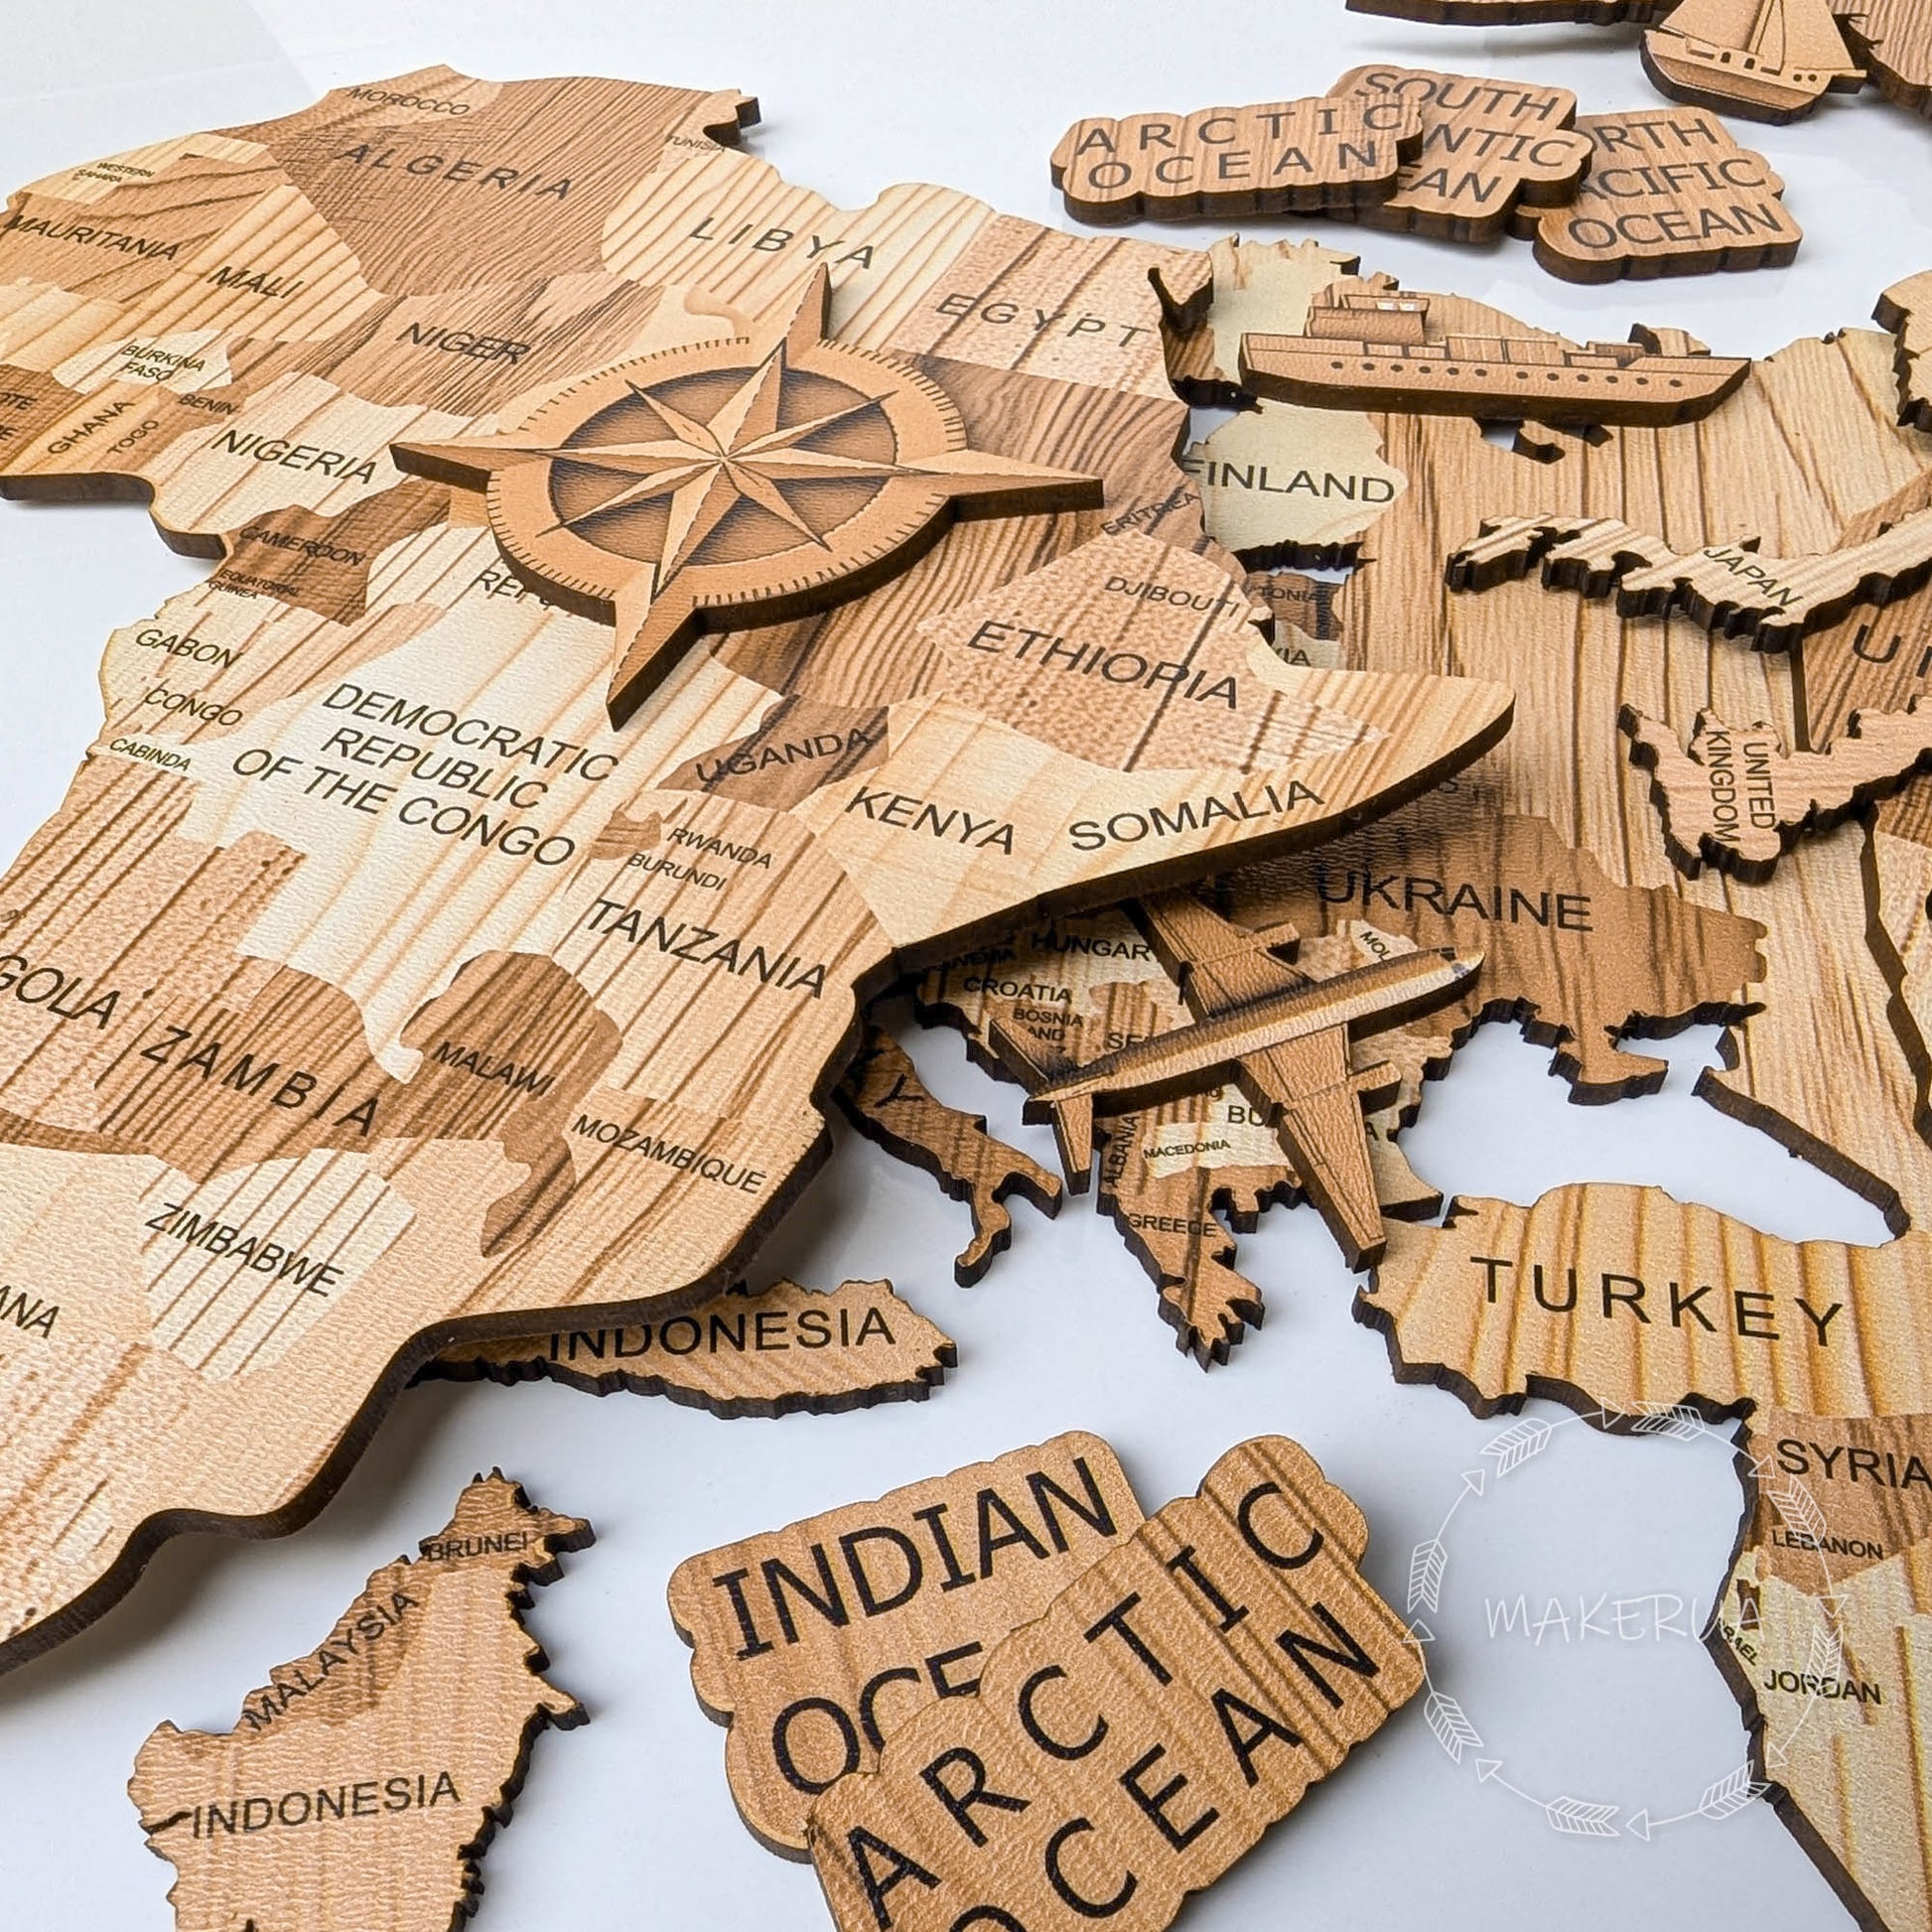 MOROCCO
ALGERIA
TUNISIA
WESTERN
SAHARA
LIBYA
MAURITANIA
MALI
EGYPT
NIGER
BURKINA
FASO
BENIN
GHANA
TOGO
NIGERIA
ERITREA
CAMEROON
EQUATORIAL
GUINEA
DJIBOUTI
ETHIOPIA
GABON
CONGO
CABINDA
DEMOCRATIC
REPUBLIC
OF THE CONGO
UGANDA
KENYA
SOMALIA
RWANDA
BURUNDI
TANZANIA
GOLA
ZAMBIA
MALAWI
MOZAMBIQUE
ZIMBABWE
ANA
ARCTIC
OCEAN
SOUTH
NTIC
EAN
RTH
ACIFIC
OCEAN
FINLAND
JAPAN
TONIA
VIA
UNITED
KINGDOM
UKRAINE
HUNGAR
MOL
CROATIA
BOSNIA
AND
SE
BU
MACEDONIA
ALBANIA
GREECE
TURKEY
SYRIA
LEBANON
RAEL
JORDAN
INDONESIA
BRUNEI
MALAYSIA
INDONESIA
INDIAN
OCE
ARCTIC
OCEAN
MAKERUA